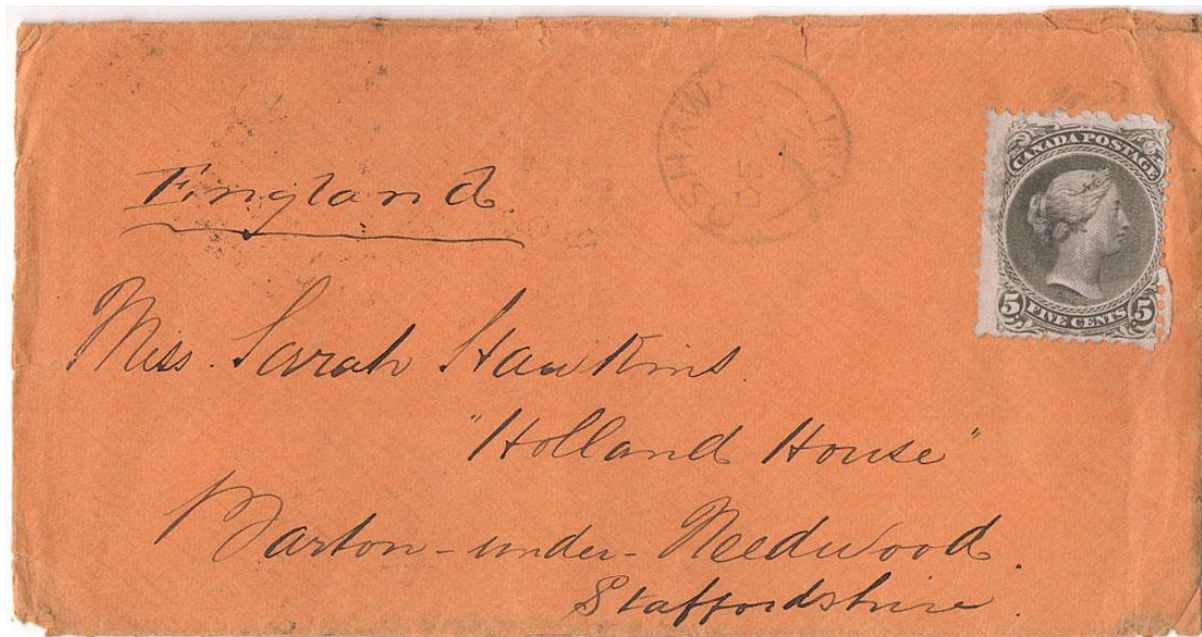 OSHAWA
CANADA POSTAGE
5 FIVE CENTS 5
England.
Miss. Sarah Hawkins.
"Holland House"
Barton-under-Needwood.
Staffordshire.